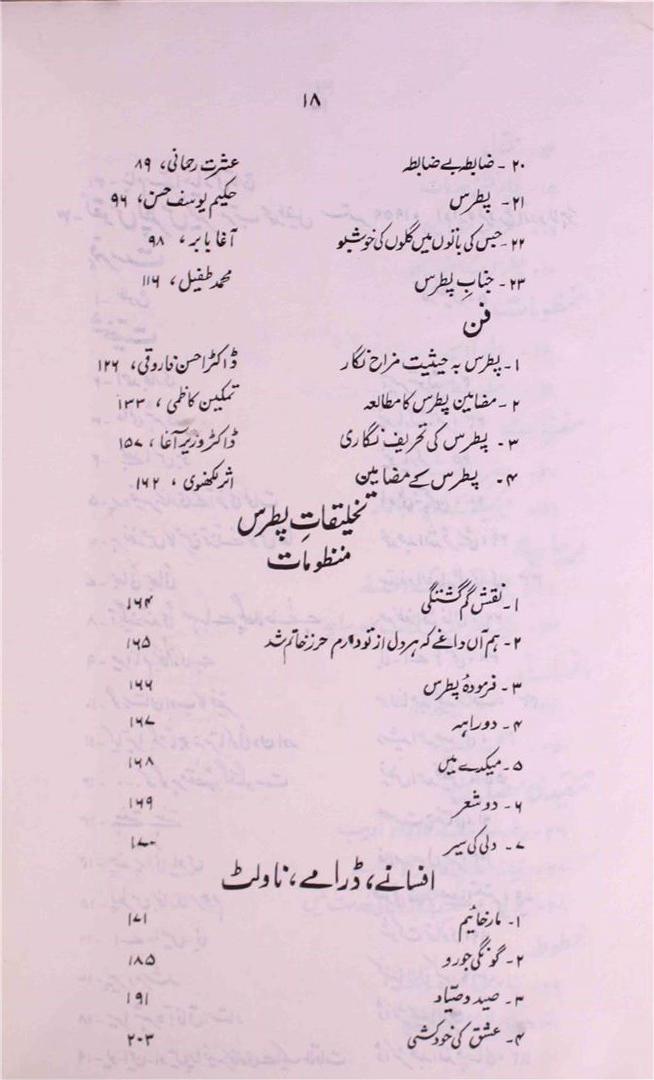 ۱۸
۲۰۔ ضابطہ بے ضابطہ عشرت رحمانی، ۸۹
۲۱۔ پطرس حکیم یوسف حسن، ۹۶
۲۲۔ جس کی باتوں میں گلوں کی خوشبو آغا بابر، ۹۸
۲۳۔ جنابِ پطرس محمد طفیل، ۱۱۶
فن
۱۔ پطرس بہ حیثیت مزاح نگار ڈاکٹر احسن فاروقی، ۱۲۶
۲۔ مضامین پطرس کا مطالعہ تمکین کاظمی، ۱۳۳
۳۔ پطرس کی تحریف نگاری ڈاکٹر وزیر آغا، ۱۵۷
۴۔ پطرس کے مضامین اثر لکھنوی، ۱۶۲
تخلیقاتِ پطرس
منظومات
۱۔ نقش گم گشتگی ۱۶۴
۲۔ ہم آں داغے کہ بر دل از تو دارم حرز جانم شد ۱۶۵
۳۔ فرمودۂ پطرس ۱۶۶
۴۔ دوراہہ ۱۶۷
۵۔ میکدے میں ۱۶۸
۶۔ دو شعر ۱۶۹
۷۔ دلی کی سیر ۱۷۰
افسانے، ڈرامے، ناولٹ
۱۔ مارخائیم ۱۷۱
۲۔ گونگی جورو ۱۸۵
۳۔ صید و صیّاد ۱۹۱
۴۔ عشق کی خودکشی ۲۰۳